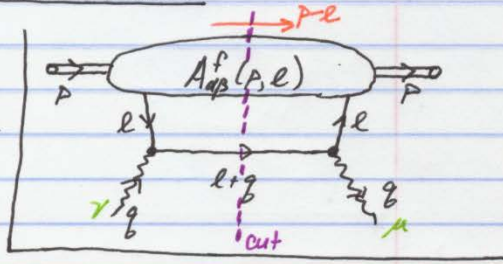 p-l
A^f_{αβ}(p,l)
p p
l l
l+q
γ q q μ
cut